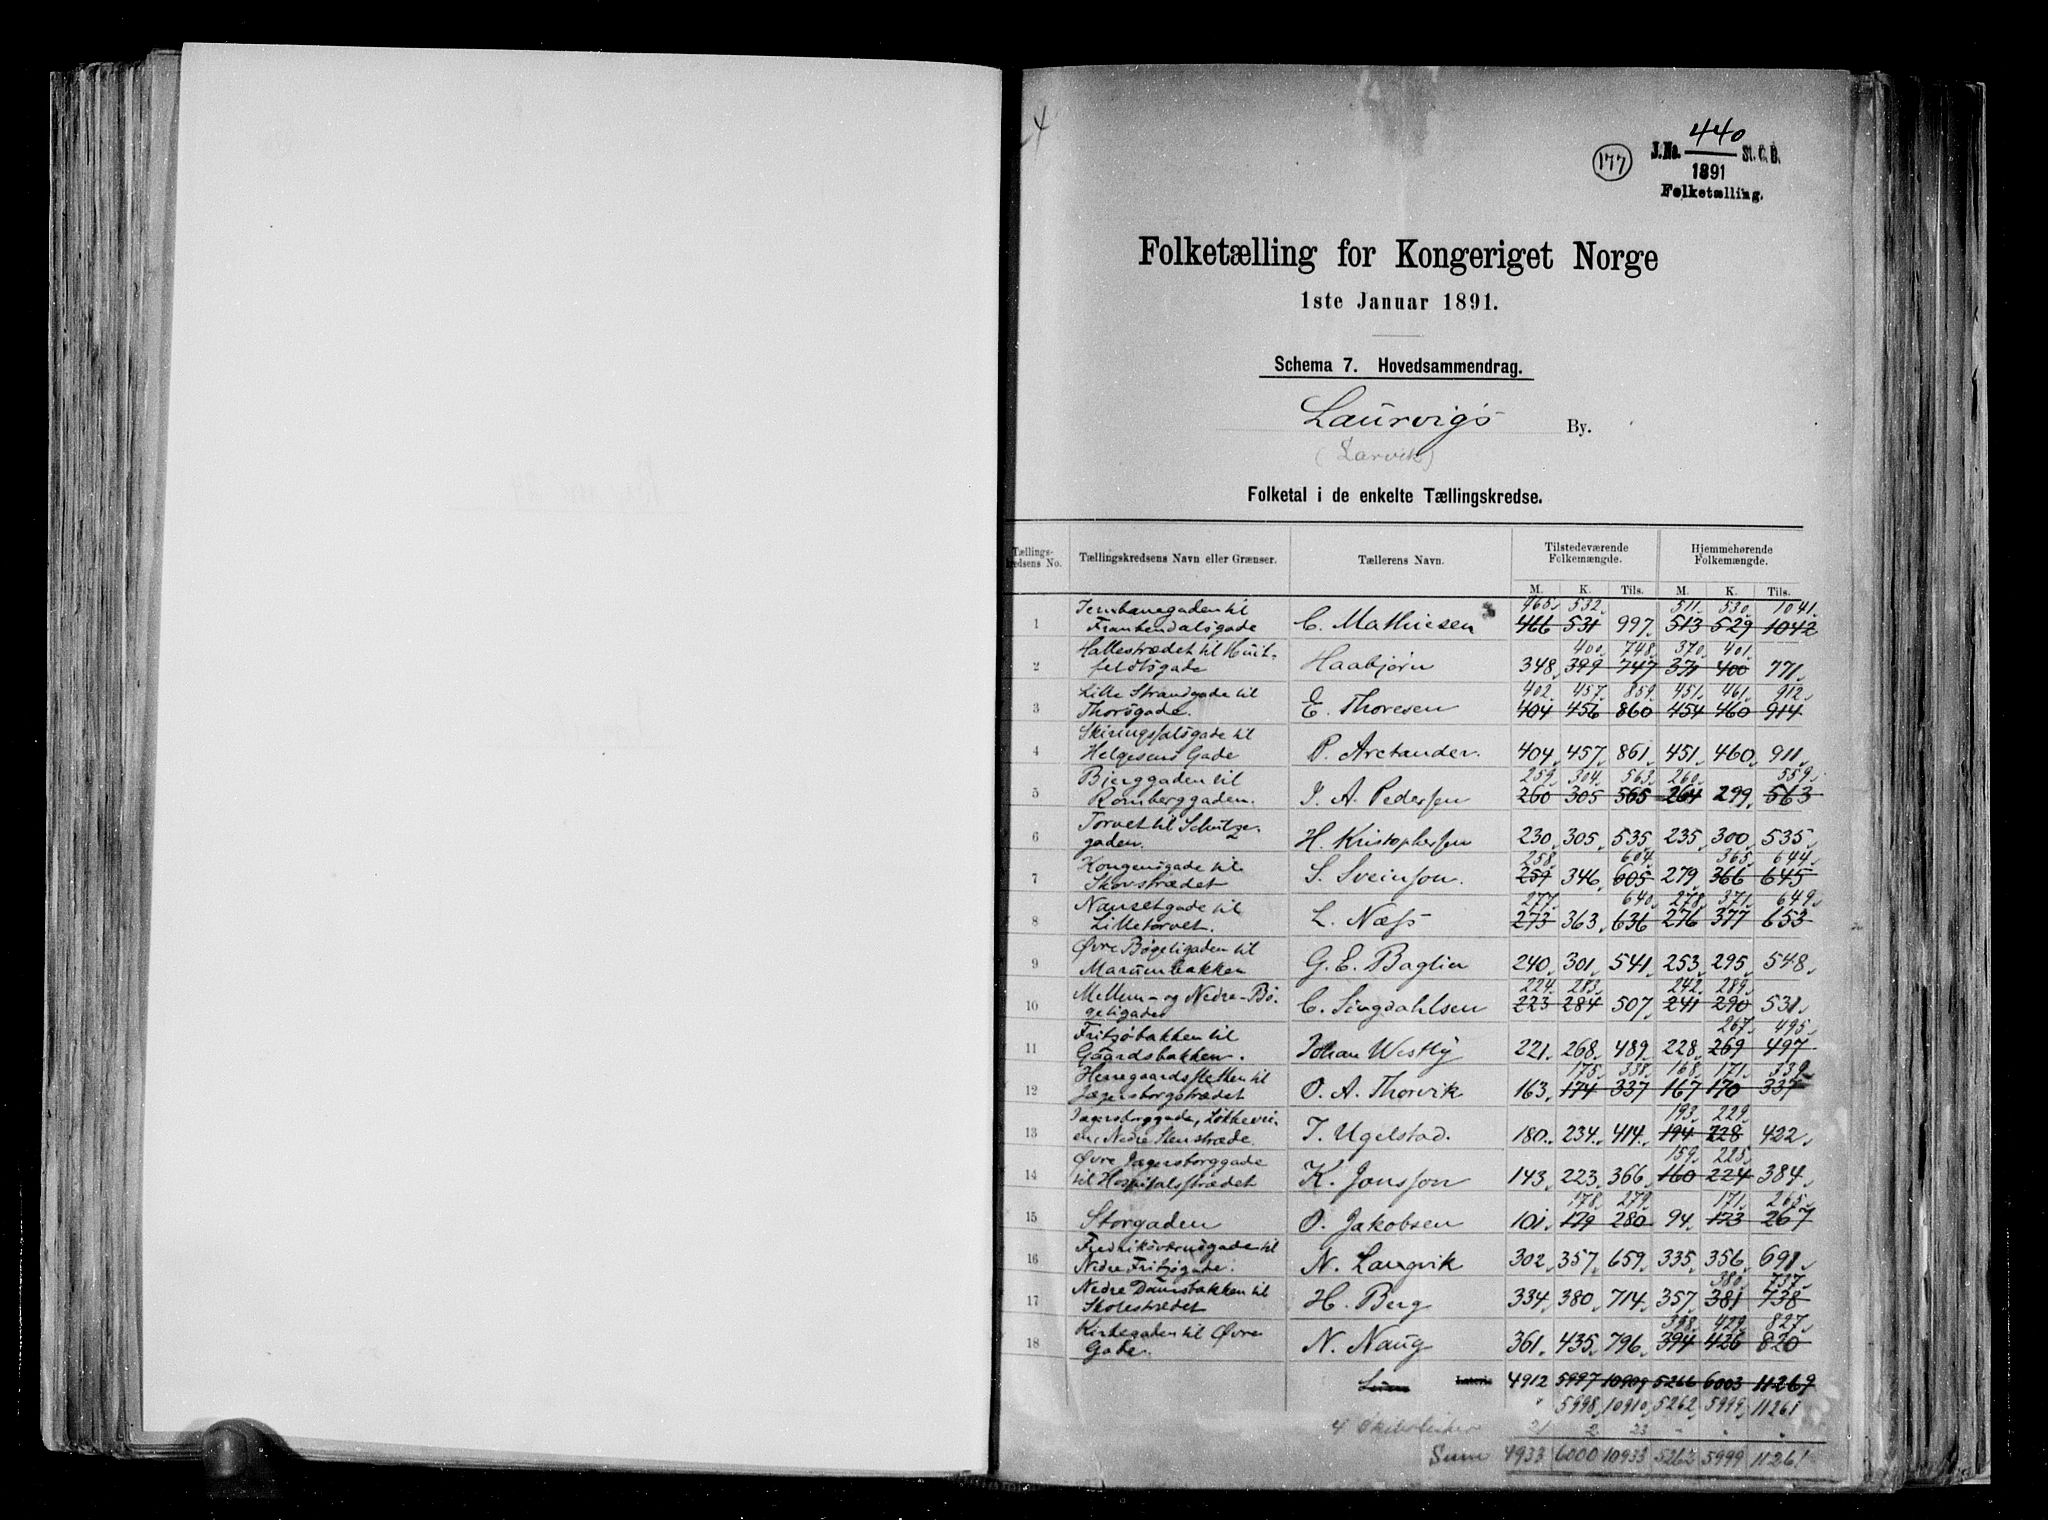 177
J.No. 440 St. C. B.
1891
Folketælling.
Folketælling for Kongeriget Norge
1ste Januar 1891.
Schema 7. Hovedsammendrag.
Laurvigs By.
(Larvik)
Folketal i de enkelte Tællingskredse.
Tællings- Tællingskredsens Navn eller Grænser. Tællerens Navn. Tilstedeværende Folkemængde. Hjemmehørende Folkemængde.
kredsens No. M. K. Tils. M. K. Tils.
Jernbanegaden til 465. 532. 511. 530. 1041.
1 Frankendalsgade C. Mathiesen 466 531 997. 513 529 1042
Hallestrædet til Huit- 400. 748. 370. 401.
2 feldtsgade Haabjørn 348. 399 747 371 400 771.
Lille Strandgade til 402. 457. 859. 451. 461. 912.
3 Thorsgade. E. Thoresen 404 456 860 454 460 914
Skiringssalsgade til
4 Helgesens Gade P. Arctander. 404. 457. 861. 451. 460. 911.
Bjerggaden til 259. 304. 563. 260. 559.
5 Romberggaden. J. A. Pedersen 260 305 565 264 299. 563
Torvet til Schultze-
6 gaden. H. Kristophersen 230. 305. 535. 235. 300. 535.
Kongensgade til 258. 604. 365. 644.
7 Skovstrædet S. Sveinson. 259 346. 605 279. 366 645
Nansetgade til 277. 640. 278. 371. 649.
8 Lilletorvet. L. Næss 273 363. 636 276 377 653
Øvre Bøgeligaden til
9 Marumbakken G. E. Baglien 240. 301. 541. 253. 295. 548.
Mellem- og Nedre-Bø- 224. 283. 242. 289.
10 geligader C. Singdahlsen 223 284 507. 241 290 531.
Fritzøbakken til 267. 495.
11 Gaardsbakken. Johan Westby 221. 268. 489. 228. 269 497
Herregaardssletten til 175. 338. 168. 171. 339.
12 Jægersborgstrædet O. A. Thorvik 163. 174 337 167 170 337
193. 229.
13 en, Nedre Stenstræde. J. Ugelstad. 180. 234. 414. 194 228 422.
Øvre Jægersborggade 159. 225.
14 til Hospitalsstrædet K. Jonsson 143. 223. 366. 160 224 384.
178. 279. 171. 265.
15 Storgaden O. Jakobsen 101. 179 280 94. 173 267
Fredriksværnsgade til
16 Nedre Fritzøgade. N. Langvik 302. 357. 659. 335. 356. 691.
Nedre Damsbakken til 380. 737.
17 Skolestrædet H. Berg 334. 380. 714. 357. 381 738
Kirkegaden til Øvre 398. 429. 827.
18 Gade. N. Naug 361. 435. 796. 394 426 820
4912 5997 10909 5266 6003 11269
" 5998. 10910. 5262. 5999. 11261
4 21 2 23 - - -
Sum 4933 6000 10933 5262 5999 11261